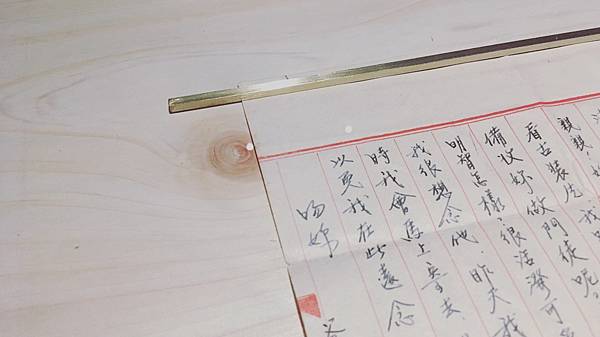 親親
看古裝片
備伎好做門徒呢。
明智怎樣,很活潑可
我很想念他.昨天我
時我會馬上寄去.
以免我在此遠念
吻妳